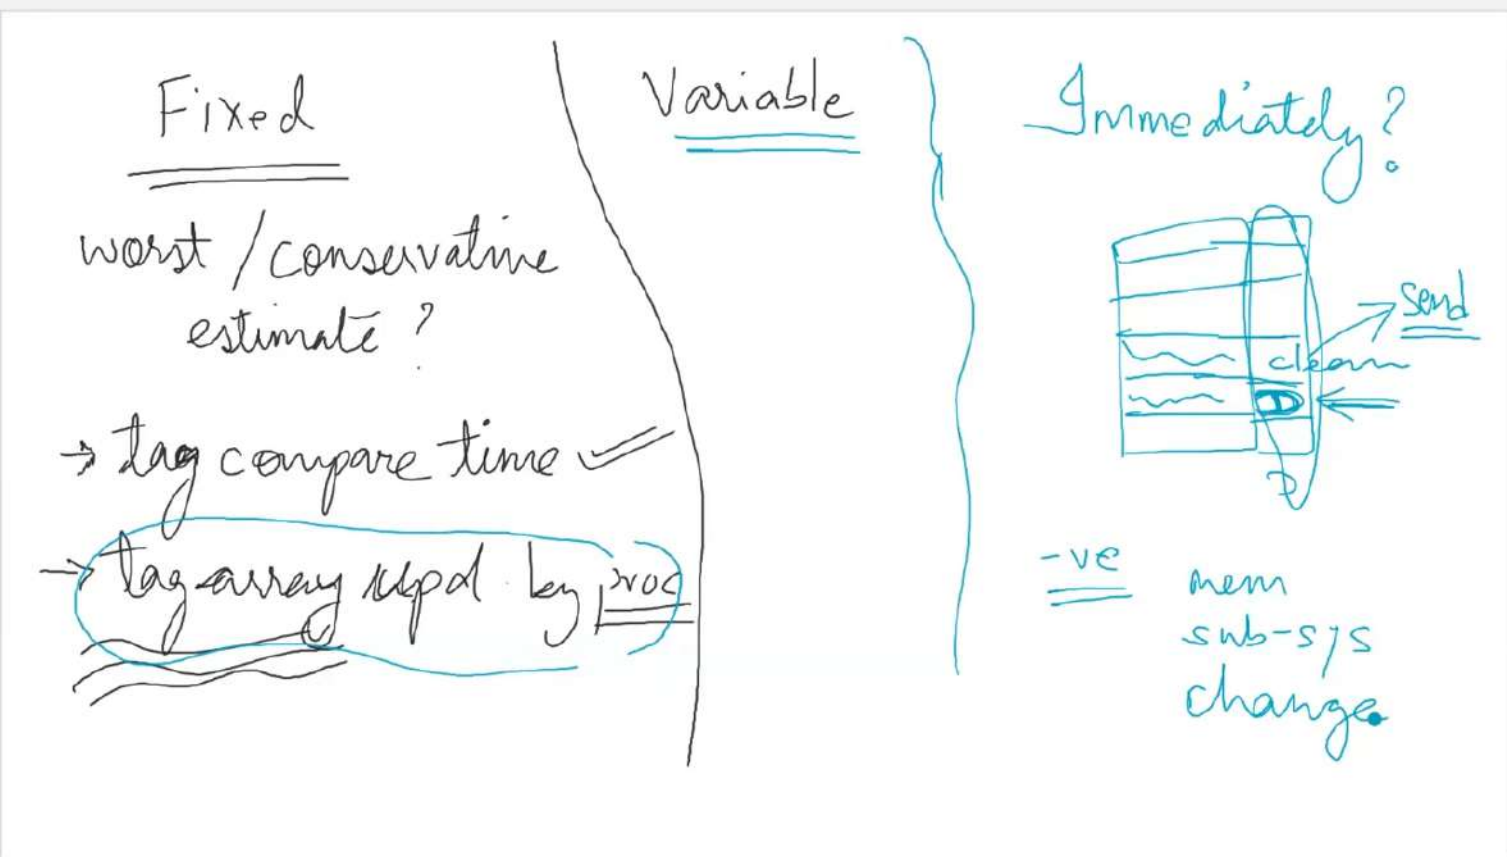 Fixed
worst / conservative
estimate ?
→ tag compare time ✓
→ tag array upd by proc
Variable
Immediately ?
send
clean
D
D
-ve
mem
sub-sys
change.